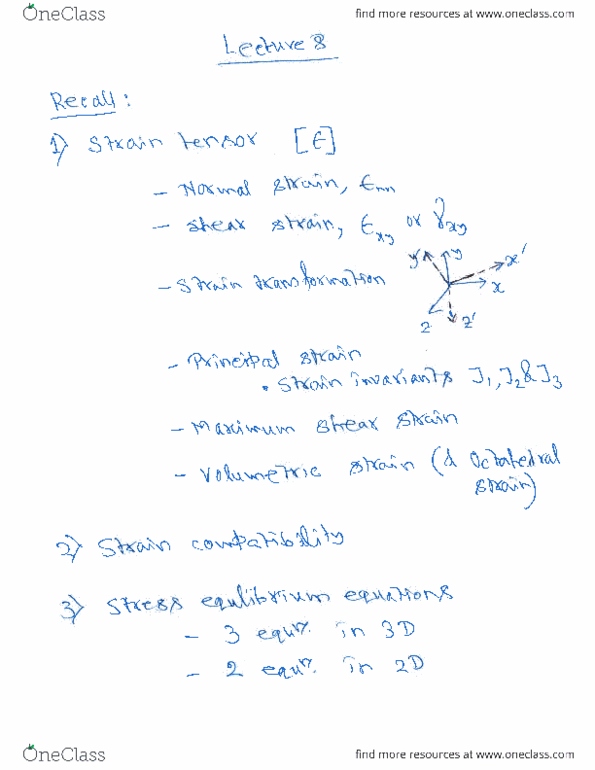 OneClass
find more resources at www.oneclass.com
Lecture 8
Recall:
1) Strain tensor [ϵ]
- Normal strain, ϵnn
- shear strain, ϵxy or γxy
y' y x'
x
z z'
- Strain transformation
- Principal strain
• Strain invariants J1, J2 & J3
- Maximum shear strain
- Volumetric strain (& Octatedral
strain)
2) Strain compatibility
3) Stress equlibrium equations
- 3 equn. in 3D
- 2 equn. in 2D
OneClass
find more resources at www.oneclass.com